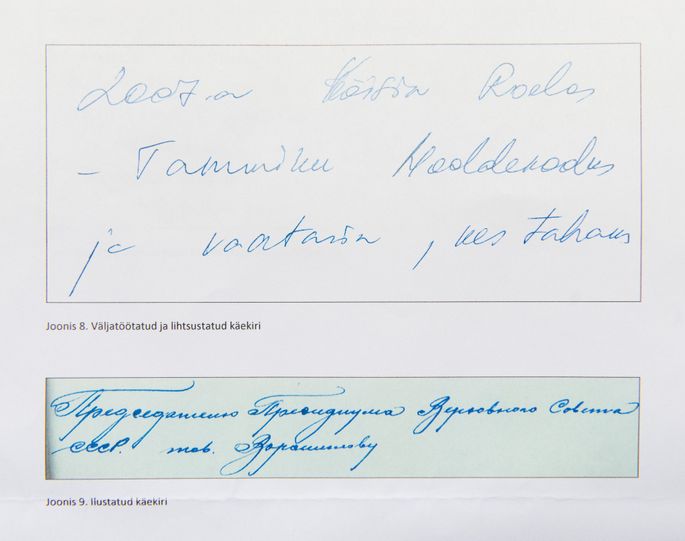 2007.a Käisin Roelas
- Tammiku Hooldekodus
ja vaatasin, kes tahaks
Joonis 8. Väljatöötatud ja lihtsustatud käekiri
Председателю Президиума Верховного Совета
СССР. тов. Ворошилову
Joonis 9. Ilustatud käekiri